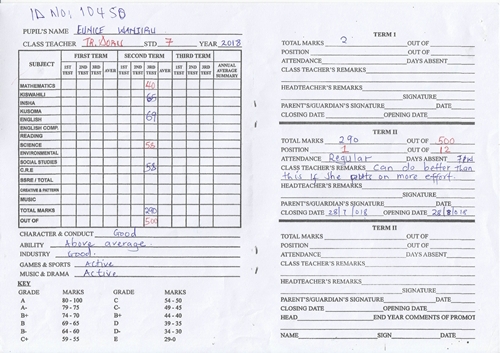 ID No: 10450
PUPIL'S NAME EUNICE WANJIRU
CLASS TEACHER TR. STD 7 YEAR 2018
SUBJECT FIRST TERM SECOND TERM THIRD TERM ANNUAL AVERAGE SUMMARY
1ST TEST 2ND TEST 3RD TEST AVER 1ST TEST 2ND TEST 3RD TEST AVER 1ST TEST 2ND TEST 3RD TEST
MATHEMATICS 40
KISWAHILI 65
INSHA
KUSOMA
ENGLISH 69
ENGLISH COMP.
READING
SCIENCE 58
ENVIRONMENTAL
SOCIAL STUDIES
C.R.E 58
SSRE / TOTAL
CREATIVE & PATTERN
MUSIC
TOTAL MARKS 290
OUT OF 500
CHARACTER & CONDUCT Good
ABILITY Above average.
INDUSTRY Good.
GAMES & SPORTS Active
MUSIC & DRAMA Active
KEY
GRADE MARKS GRADE MARKS
A 80 - 100 C 54 - 50
A- 79 - 75 C- 49 - 45
B+ 74 - 70 B+ 44 - 40
B 69 - 65 D 39 - 35
B- 64 - 60 D- 34 - 30
C+ 59 - 55 E 29-0
TERM I
TOTAL MARKS 2 OUT OF
POSITION OUT OF
ATTENDANCE DAYS ABSENT
CLASS TEACHER'S REMARKS
HEADTEACHER'S REMARKS
SIGNATURE
PARENT'S/GUARDIAN'S SIGNATURE DATE
CLOSING DATE OPENING DATE
TERM II
TOTAL MARKS 290 OUT OF 500
POSITION 1 OUT OF 12
ATTENDANCE Regular DAYS ABSENT
CLASS TEACHER'S REMARKS Can do better than
this if she puts on more effort.
HEADTEACHER'S REMARKS
SIGNATURE
PARENT'S/GUARDIAN'S SIGNATURE DATE
CLOSING DATE 28/7/018 OPENING DATE 28/8/018
TERM II
TOTAL MARKS OUT OF
POSITION OUT OF
ATTENDANCE DAYS ABSENT
CLASS TEACHER'S REMARKS
HEADTEACHER'S REMARKS
SIGNATURE
PARENT'S/GUARDIAN'S SIGNATURE DATE
CLOSING DATE OPENING DATE
HEAD END YEAR COMMENTS OF PROMOT
NAME SIGN DATE